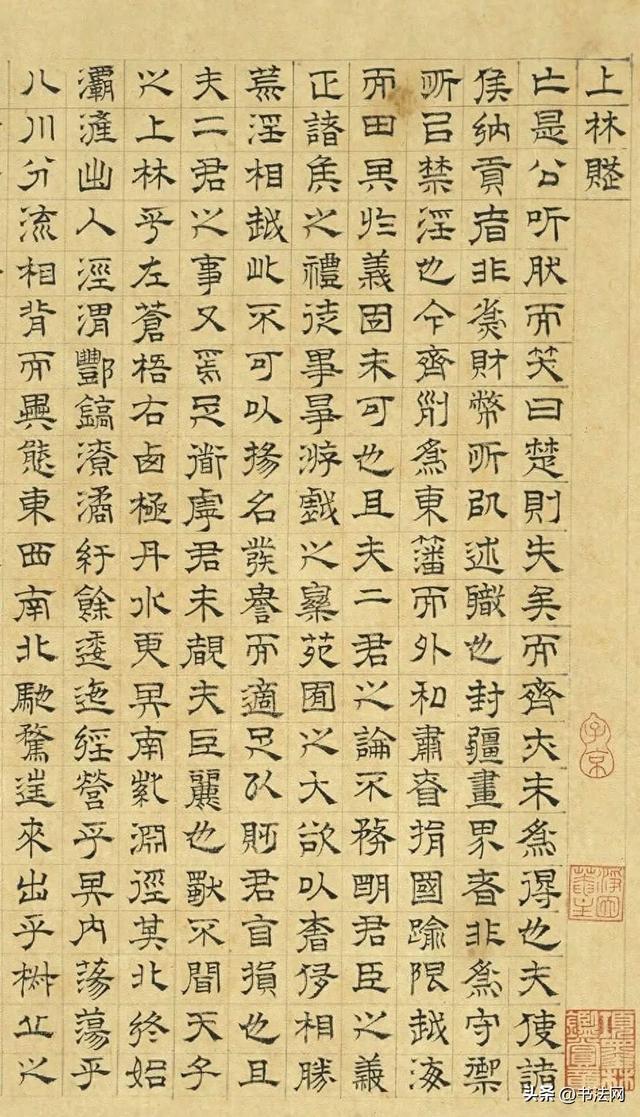 上林賦
亡是公听肰而笑曰楚則失矣而齊亦未爲得也夫使諸
侯納貢者非爲財幣所㠯述職也封疆畫界者非爲守禦
所㠯禁淫也今齊列爲東藩而外和肅眘捐國踰限越海
而田其於義固未可也且夫二君之論不務明君臣之義
正諸侯之禮徒事爭游戲之樂苑囿之大欲以奢侈相勝
荒淫相越此不可以揚名發譽而適足以貶君自損也且
夫二君之事又焉足道虖君未覩夫巨麗也獨不聞天子
之上林乎左蒼梧右西極丹水更其南紫淵徑其北終始
灞滻出入涇渭酆鎬潦潏紆餘逶迤經營乎其內蕩蕩乎
八川分流相背而異態東西南北馳騖往來出乎椒丘之
子京
头条 @书法网